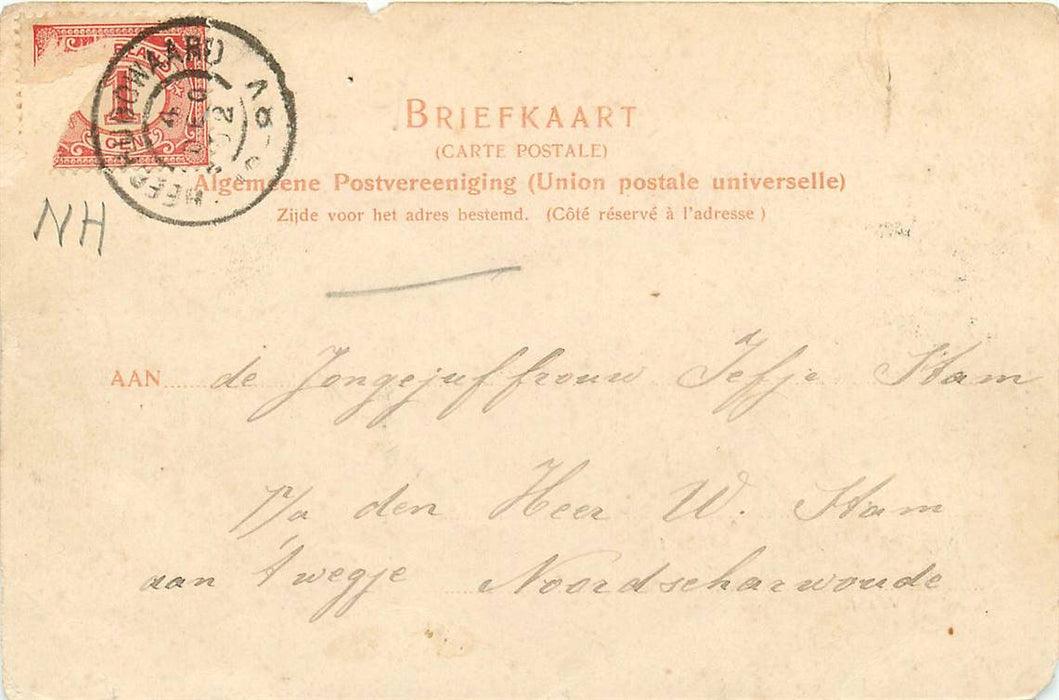 1
CEN
HEERHUGOWAARD
4 DEC 02
BRIEFKAART
(CARTE POSTALE)
Algemeene Postvereeniging (Union postale universelle)
Zijde voor het adres bestemd. (Côté réservé à l'adresse)
NH
AAN de Jongejuffrouw Iefje Stam
p/a den Heer W. Stam
aan 't wegje Noordscharwoude